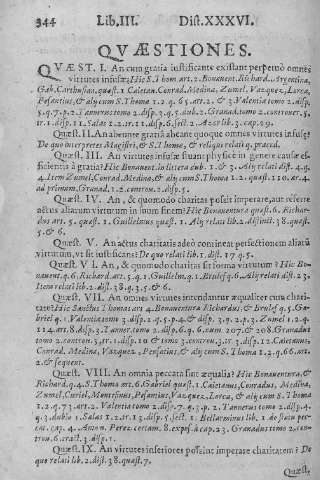 344 Lib. III. Dist. XXXVI.
QVÆSTIONES.
QVÆST. I. An cum gratia iustificante existant perpetuò omnes
virtutes infusæ? Hic S. Thom. art. 2. Bonauent. Richard. Argentina,
Gab. Carthusian. quæst. 1. Caietan. Conrad. Medina, Zumel, Vazquez, Lorca,
Pesantius, & alij cum S. Thoma 1. 2. q. 65. art. 2. & 3. Valentia tomo 2. disp.
5. q. 7. p. 2. Tannerus tomo 2. disp. 3. q. 3. dub. 2. Granad. tomo 2. controuer. 5.
tr. 1. disp. 11. Salas 1. 2. tr. 11. disp. 5. sect. 2. Azor lib. 3. cap. 29.
Quæst. II. An abeunte gratiâ abeant quoque omnes virtutes infusæ?
De quo interpretes Magistri, & S. Thomæ, & reliqui relati q. præced.
Quæst. III. An virtutes infusæ fluant physicè in genere causæ ef-
ficientis à gratia? Hic Bonauent. in littera dub. 1. & 3. Alij relati dist. 4. q.
4. Item Zumel, Conrad. Medina, & alij cum S. Thoma 1. 2. quæst. 110. ar. 4.
ad primum. Granad. 1. 2. controu. 2. disp. 5.
Quæst. IV. An, & quomodo charitas possit imperare, aut referre
actus aliarum virtutum in suum finem? Hic Bonauentura quæst. 6. Richar-
dus art. 5. quæst. 1. Guillelmus quæst. 1. Alij relati lib. 2. distinct. 38. quæst.
5. & 6.
Quæst. V. An actus charitatis adeò contineat perfectionem aliarū
virtutum, vt sit iustificans? De quo relati lib. 1. dist. 17. q. 5.
Quæst. VI. An, & quomodo charitas sit forma virtutum? Hic Bo-
nauent. q. 6. Richard. art. 5. q. 1. Guillelm. q. 1. Breulesf. q. 6. Alij relati dist. 23.
Item relati lib. 2. disp. 38. q. 3. 5. & 6.
Quæst. VII. An omnes virtutes intendantur æqualiter cum chari-
tate? Hic Sanctus Thomas art. 4. Bonauentura, Richardus, & Breulef. q. 5. Ga-
briel q. 1. Valentia tomo 3. disp. 2. q. 5. p. 4. & disp. 3. q. 2. p. 3. Zumel 1. 2. q.
114. art. 8. disp. 2. Tanner. tomo 2. disp. 6. q. 6. num. 207. & 208. Granadus
tomo 2. controu. 3. tr. 1. disp. 10. & tomo 3. controu. 3. tr. 3. disp. 2. Caietanus,
Conrad. Medina, Vazquez, Pesantius, & alij cum S. Thoma 1. 2. q. 66. art.
2. & sequent.
Quæst. VIII. An omnia peccata sint æqualia? Hic Bonauentura, &
Richard. q. 4. S. Thoma art. 6. Gabriel quæst. 1. Caietanus, Conradus, Medina,
Zumel, Curiel, Muntesinus, Pesantius, Vazquez, Lorca, & alij cum S. Thoma
1. 2. q. 73. art. 2. Valentia tomo 2. disp. 7. q. 3. p. 2. Tannerus tomo 2. disp. 4.
q. 3. dubio 1. Salas 1. 2. tr. 13. disp. 5. sect. 1. Bellarminus lib. 1. de statu pec-
cat. cap. 4. Anton. Perez. certam. 8. exposi. à cap. 23. Granadus tomo 2. con-
trou. 6. tract. 3. disp. 1.
Quæst. IX. An virtutes inferiores possint imperare charitatem? De
quo relati lib. 2. dist. 38. quæst. 7.
Quæst.